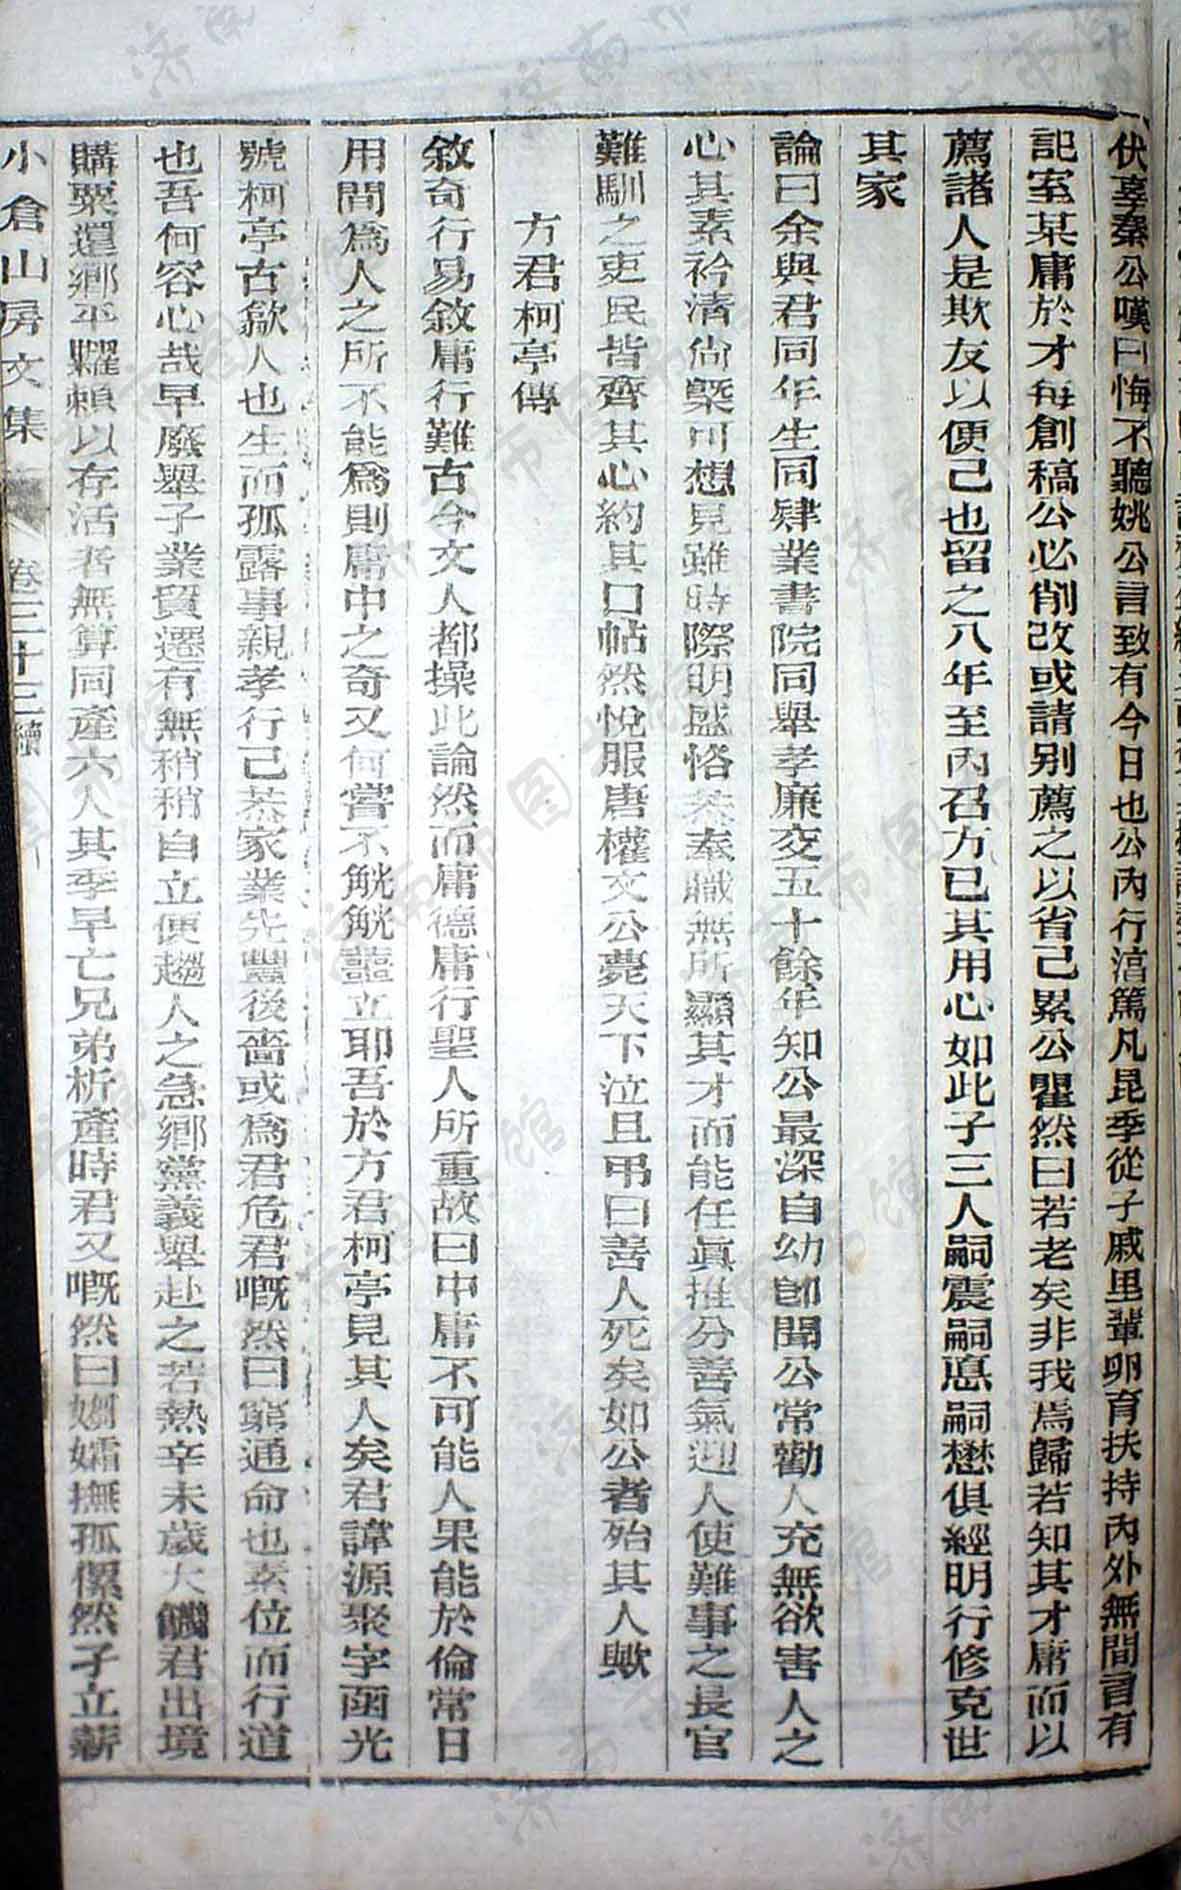 伏辜秦公嘆曰悔不聽姚公言致有今日也公內行湻篤凡昆季從子戚里輩卵育扶持內外無間言有
記室某庸於才每創稿公必削改或請别薦之以省己累公瞿然曰若老矣非我焉歸若知其才庸而以
薦諸人是欺友以便己也留之八年至內召方已其用心如此子三人嗣震嗣悳嗣懋俱經明行修克世
其家
論曰余與君同年生同肄業書院同舉孝廉交五十餘年知公最深自幼卽聞公常勸人充無欲害人之
心其素衿清尚槩可想見雖時際明盛恪恭奉職無所顯其才而能任眞推分善氣迎人使難事之長官
難馴之吏民皆齊其心約其口帖然悅服唐權文公薨天下泣且弔曰善人死矣如公者殆其人歟
方君柯亭傳
敘奇行易敘庸行難古今文人都操此論然而庸德庸行聖人所重故曰中庸不可能人果能於倫常日
用間爲人之所不能爲則庸中之奇又何嘗不觥觥矗立耶吾於方君柯亭見其人矣君諱源聚字函光
號柯亭古歙人也生而孤露事親孝行己恭家業先豐後嗇或爲君危君嘅然曰窮通命也素位而行道
也吾何容心哉早廢舉子業貿遷有無稍稍自立便趨人之急鄉黨義舉赴之若熱辛未歲大饑君出境
購粟還鄉平糶賴以存活者無算同產六人其季早亡兄弟析產時君又嘅然曰嫠孀撫孤傫然孑立薪
小倉山房文集 卷三十三續
济南市图书馆